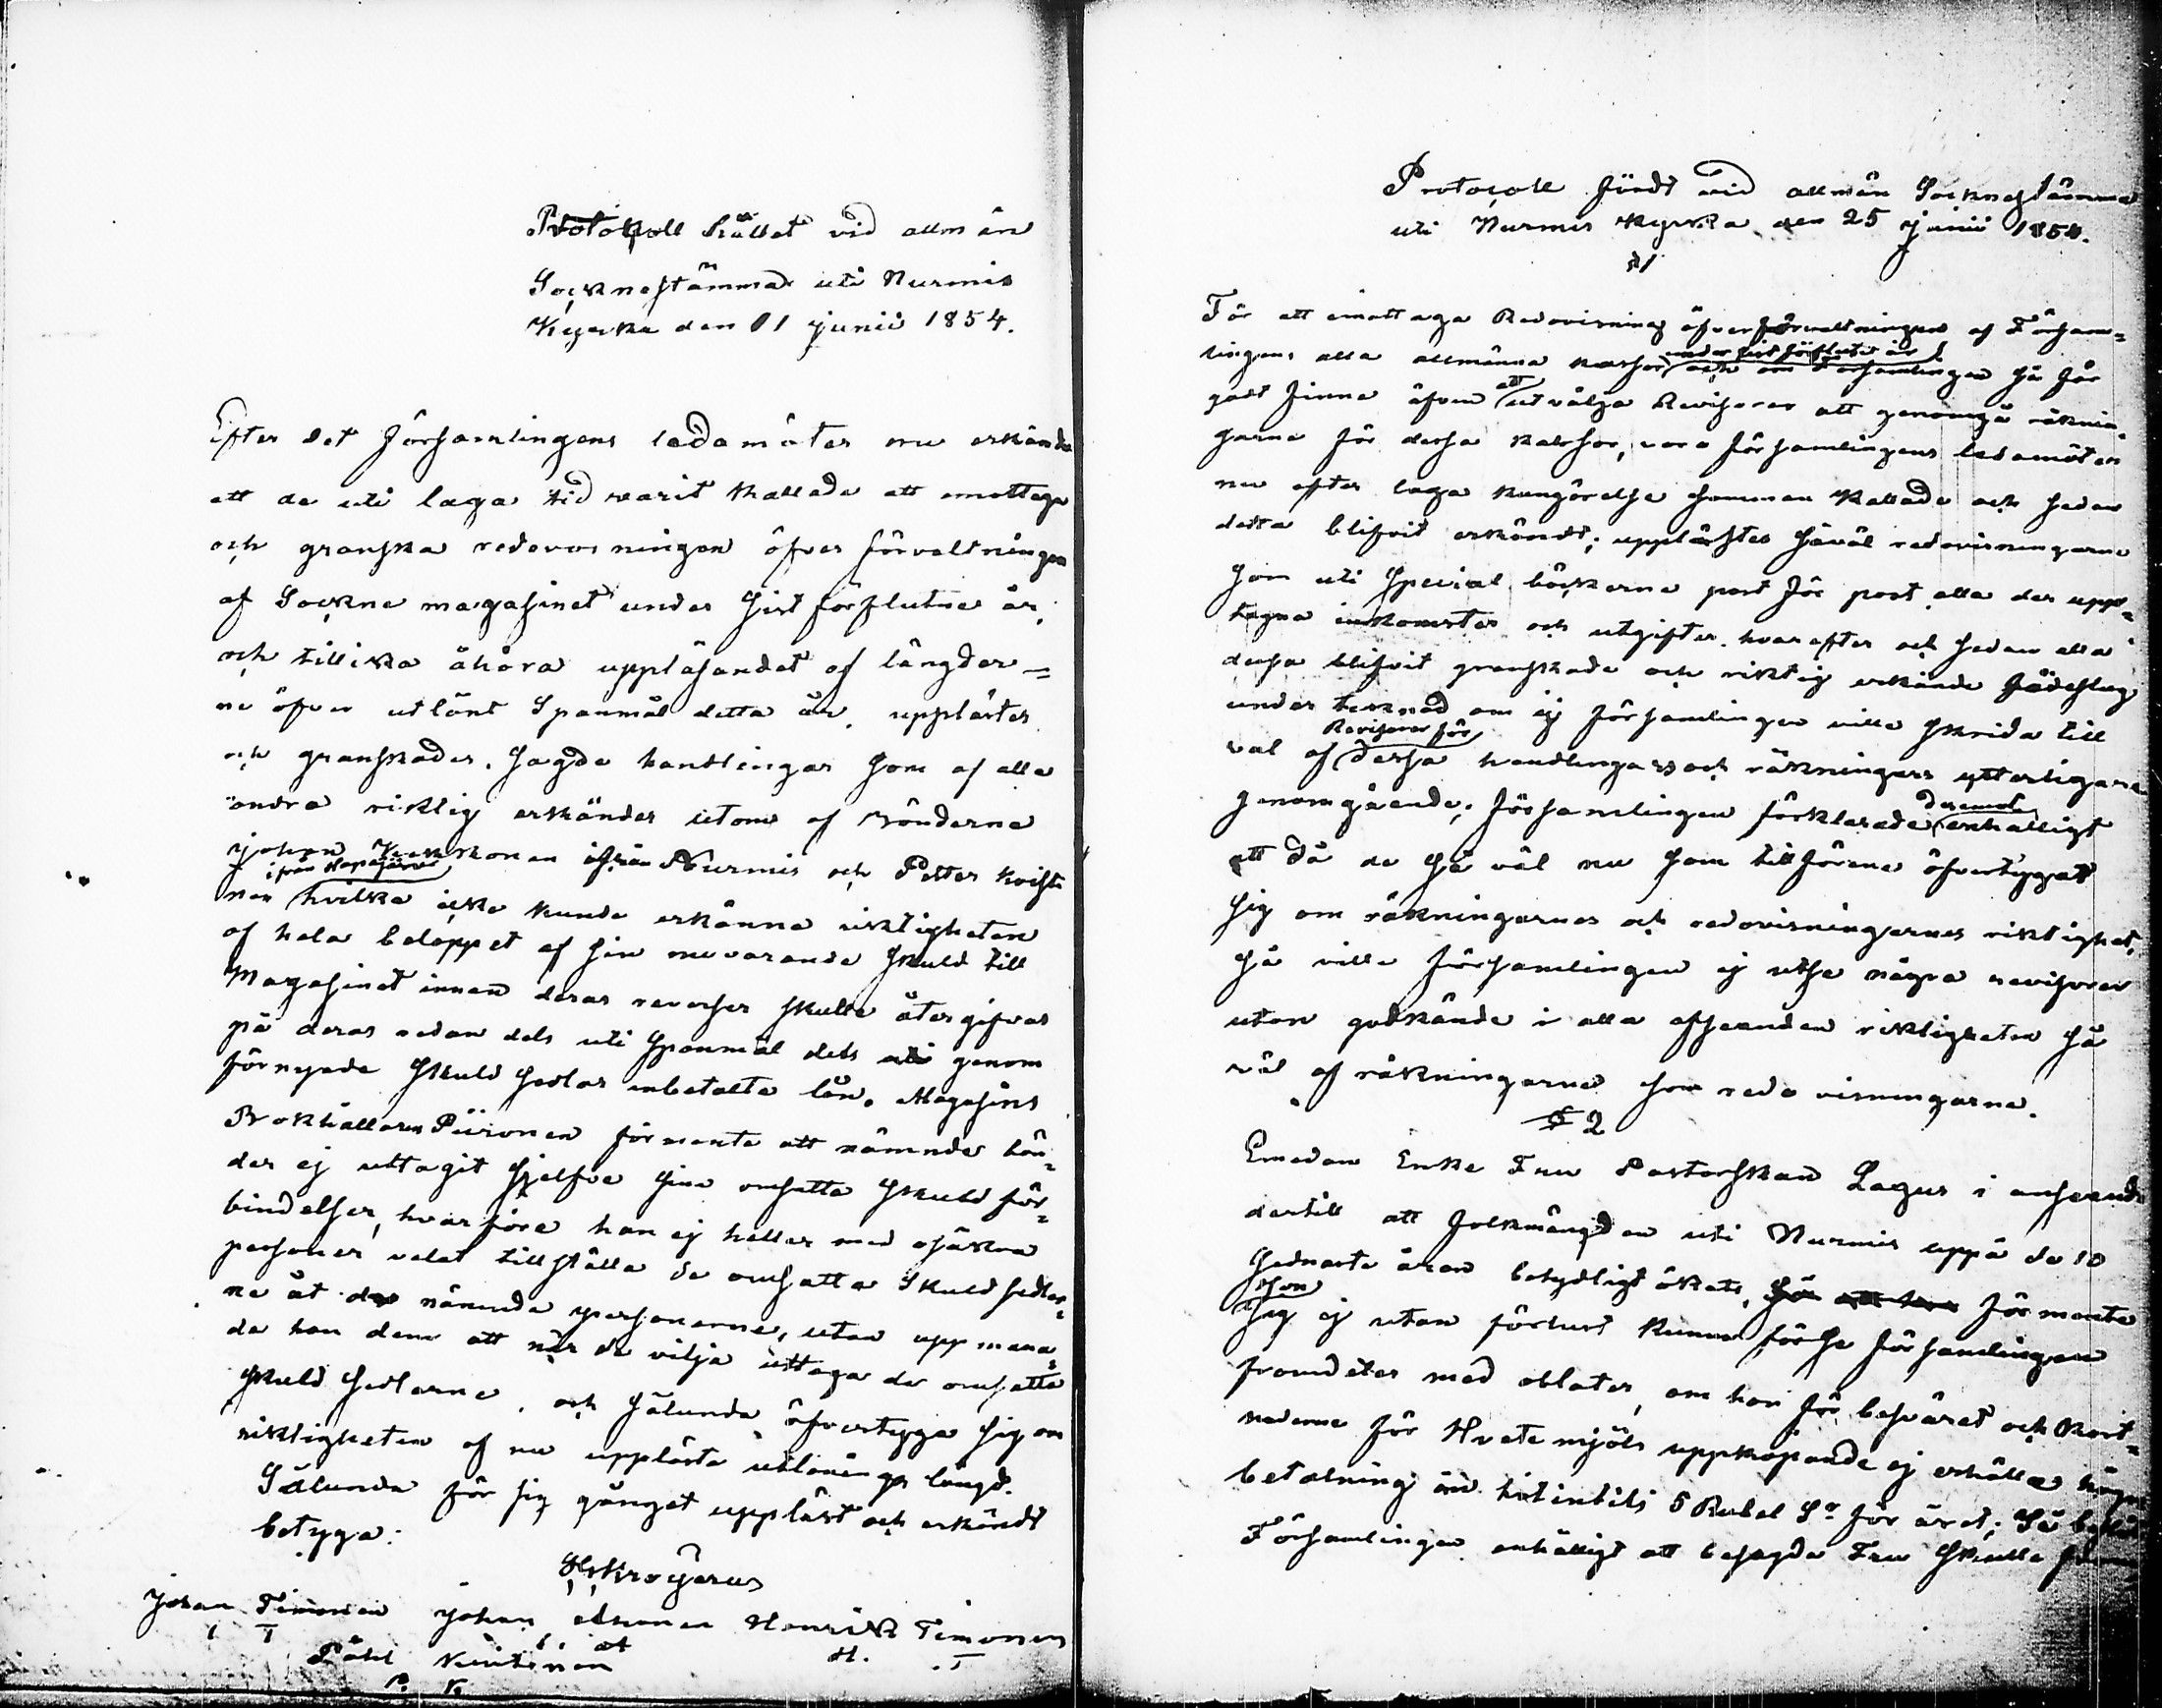 Protokoll hållet vid allmän
Sockneståmma uti Nurmis
Kyrka den 11 junii 1854.
Efter det församlingens ledamöter nu erkänt
att de uti laga tid varit kallade att emottaga
och granska redovisningen öfver förvaltningen
af Sockne magasinet under sist förflutne år,
och tillika åhöra uppläsandet af längder=
ne öfver utlånt Spanmål detta år, upplästes
och granskades sagde handlingar som af alla
andra riktig erkändes utom af Bönderna
Johan Kuokkonen ifrån Nurmis och Petter
ifrån
nen hvilka icke kunde erkänna riktigheten
af hela beloppet af sin nuvarande skuld till
Magasinet innan deras reverser skulle återgifvas
på deras redan dels uti spanmål dels uti genom
förnyade skuld sedlar inbetalte lån. Magasins
Bokhållaren Piironen förmente att nämnde bön=
der ej uttagit sjelfve sine omsatta skuld för=
bindelser, hvarföre han ej heller med osäkra
personer velat tillställa de omsatta skuld sedlar=
ne åt de nämnda personerne, utan uppmana=
de han dem att når de vilja uttaga de omsatta
skuld sedlarne, och sålunda öfvertyga sig om
riktigheten af nu upplästa utlånings längd.
Sålunda för sig gånget uppläst och erkändt
betyga:
Johan Timonen Johan Henrik Timonen
I T H. T
Påhl
P. K
Protocoll fördt vid allmän Sockneståmma
uti Nurmis Kyrka den 25 junii 1854.
§1
För att emottaga Redovisning öfver förvaltningen af Församl=
under sist förflutne år
lingens alla allmänna kassor och om Församlingen så för
att
godt finne äfven utvälja Revisorer att genomgå räknin=
garne för dessa kassor, voro församlingens ledamöter
nu efter laga kungörelse sammankallade och sedan
detta blifvit erkändt; upplästes såväl redovisningarne
som uti special böckerne post för post alla der upp=
tagna inkomster och utgifter. hvarefter och sedan alla
dessa blifvit granskade och riktig erkände
under om ej församlingen ville skrida till
Revisorer för
val af dessa handlingars och räkningars ytterligare
deremot
genomgående; församlingen förklarade enhälligt
att då de så väl nu som tillförene öfvertygat
sig om räkningarnes och redovisningarnes riktighet,
så ville församlingen ej utse några revisorer
utan godkände i alla afseenden riktigheten så
väl af räkningarne som redovisningarne.
§2
Emedan Enke Fru Pastorskan Lagus i anseende
dertill att folkmängden uti Nurmis uppå de 10
sednaste åren betydligt ökats, för att hon förmente
hon
sig ej utan förlust kunna förse församlingen
framdeles med oblater, om hon för besväret och kost=
naderne för Hvetemjöls uppköpande ej erhåller högre
betalning än hitintils 5 Rubel Sr för året; Så
Församlingen enhälligt att besagde Fru skulle